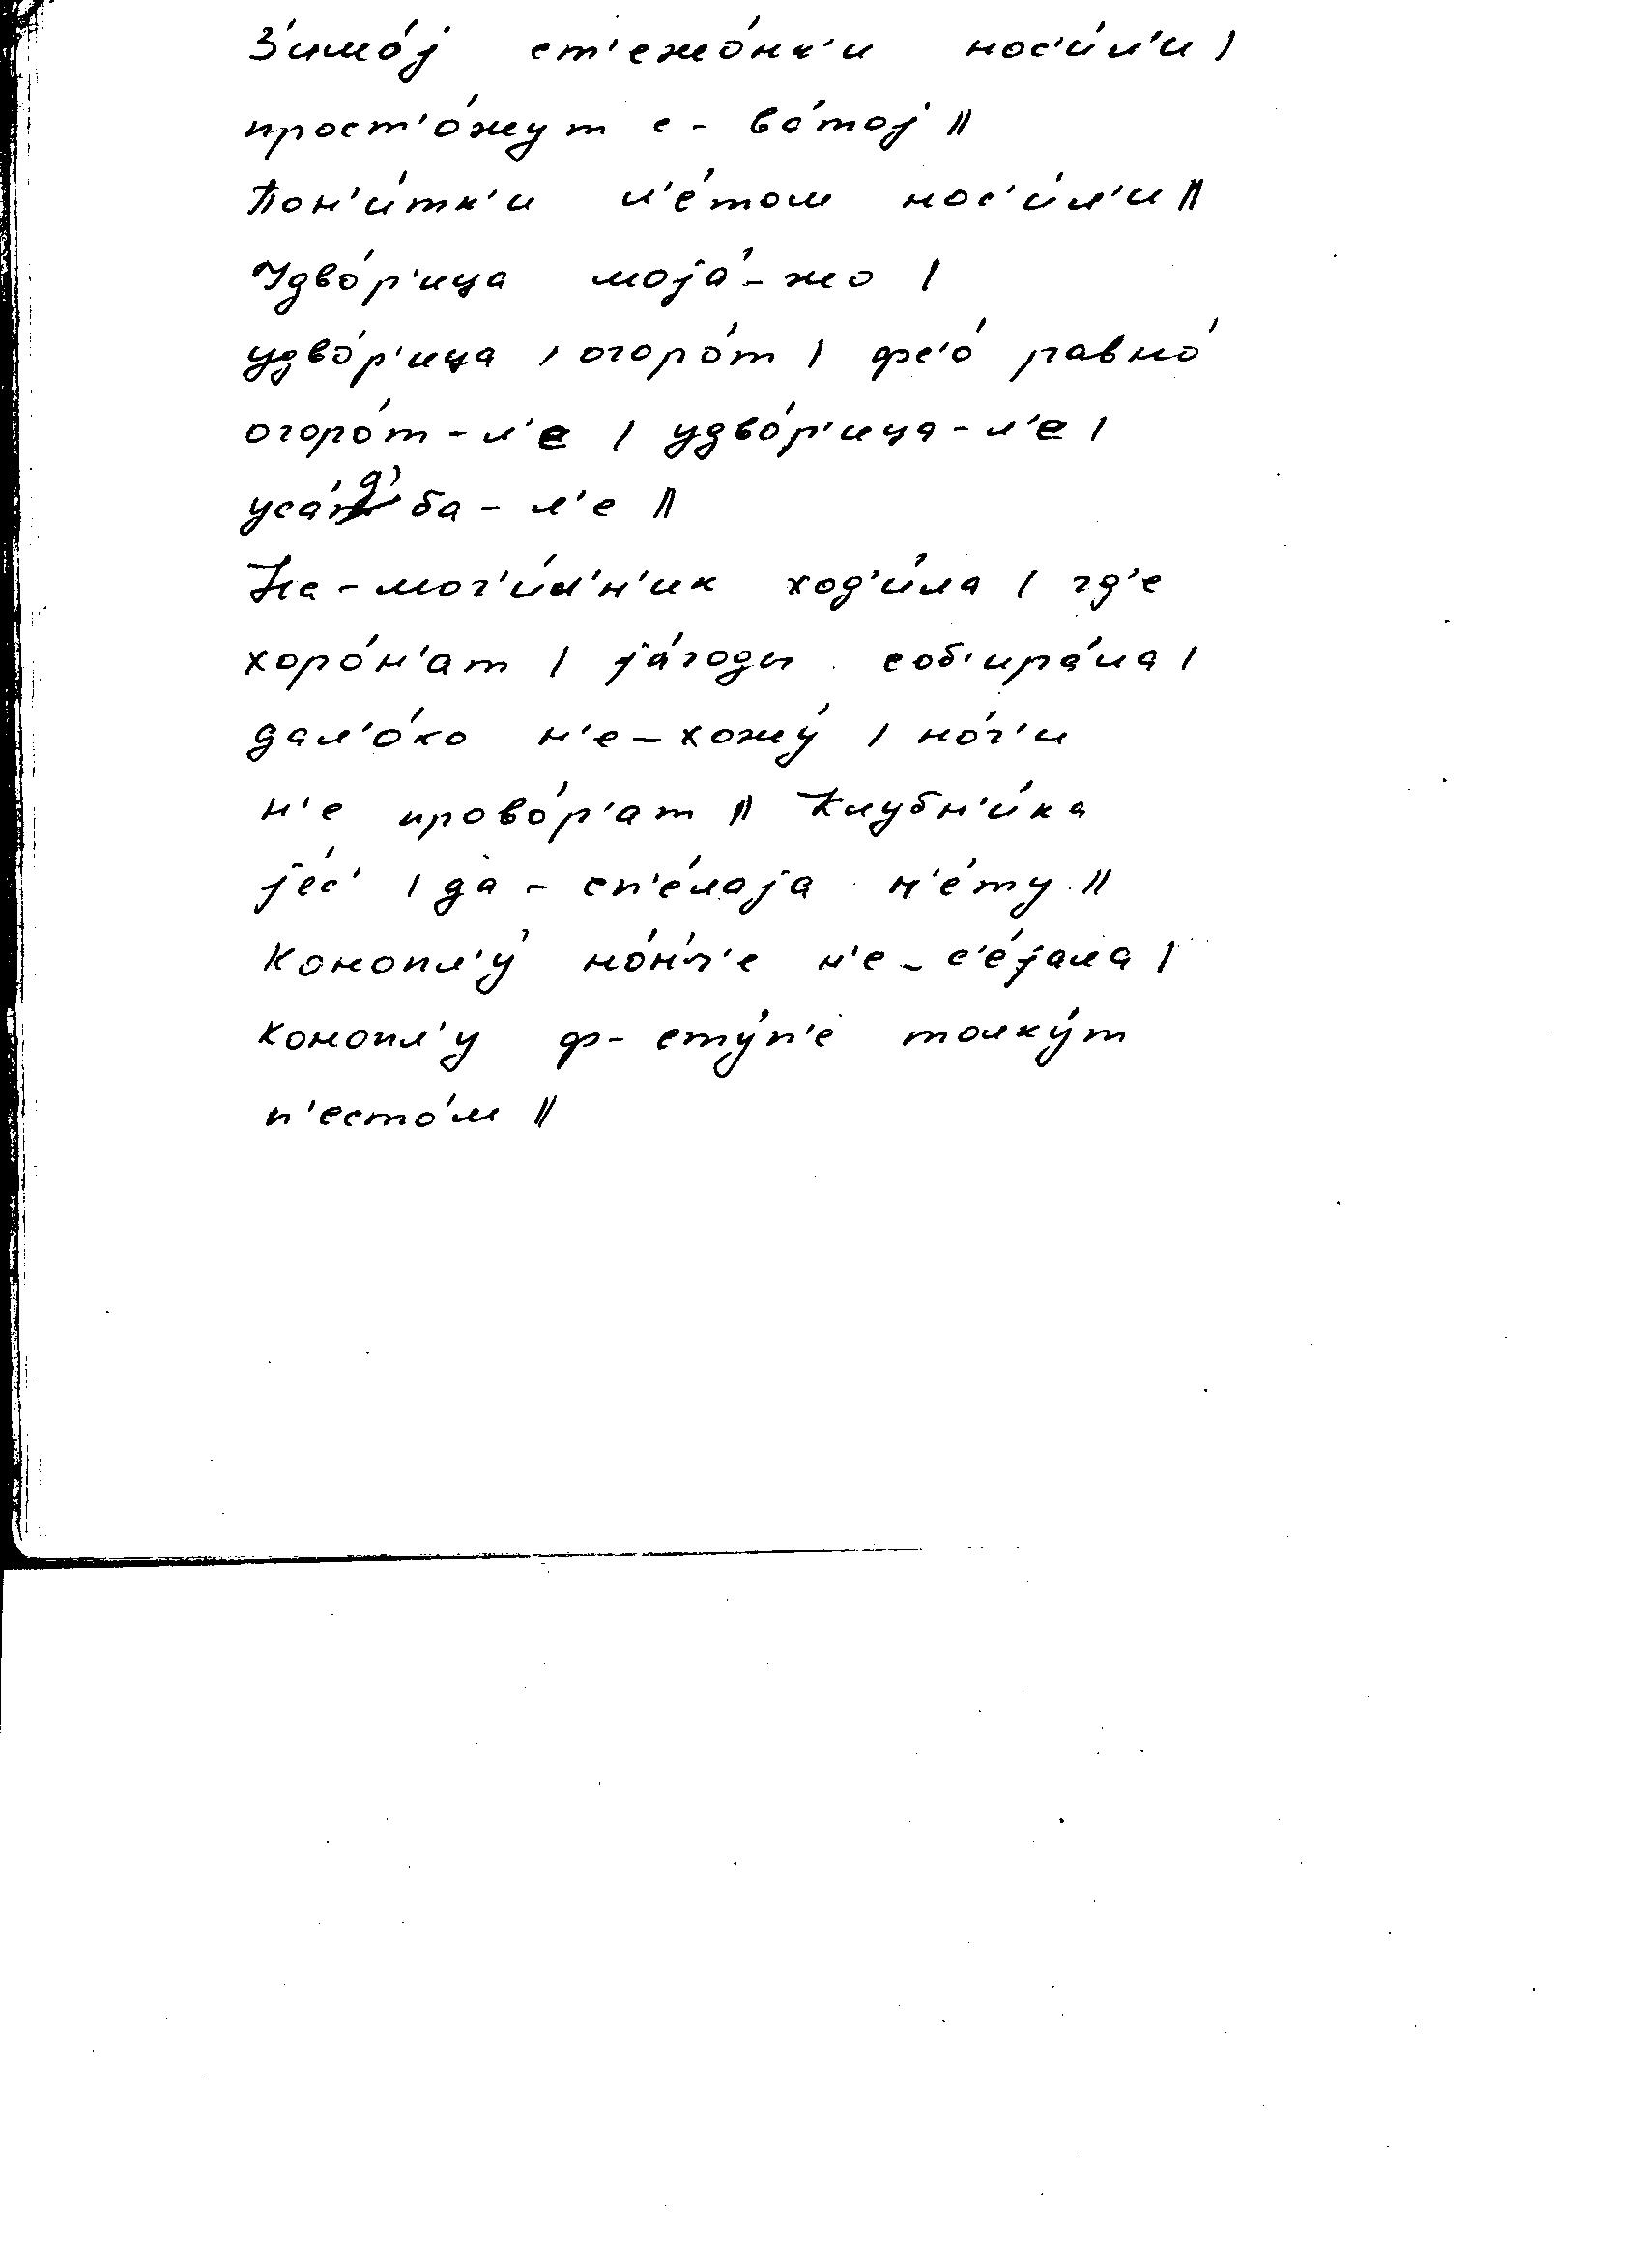 З'имо́j ст'ежо́нк'и нос'и́л'и |
прост'о́жут с- ва́тоj ||
Пон'и́тк'и л'е́том нос'и́л'и ||
Удво́р'ица моjа́-жо |
удво́р'ица | огоро́т | фс'о́ равно́
огоро́т-л'е | удво́р'ица-л'е |
уса́д'ба-л'е ||
На-мог'и́л'н'ик ход'и́ла | гд'е
хоро́н'ат | jа́годы соб'ира́ла |
дал'о́ко н'е-хожу́ | но́г'и
н'е прово́р'ат || Клубн'и́ка
jе́с' | да-сп'е́лаjа н'е́ту ||
Конопл'у́ но́н'ч'е н'е-с'е́jала |
конопл'у ф-сту́п'е толку́т
п'есто́м ||